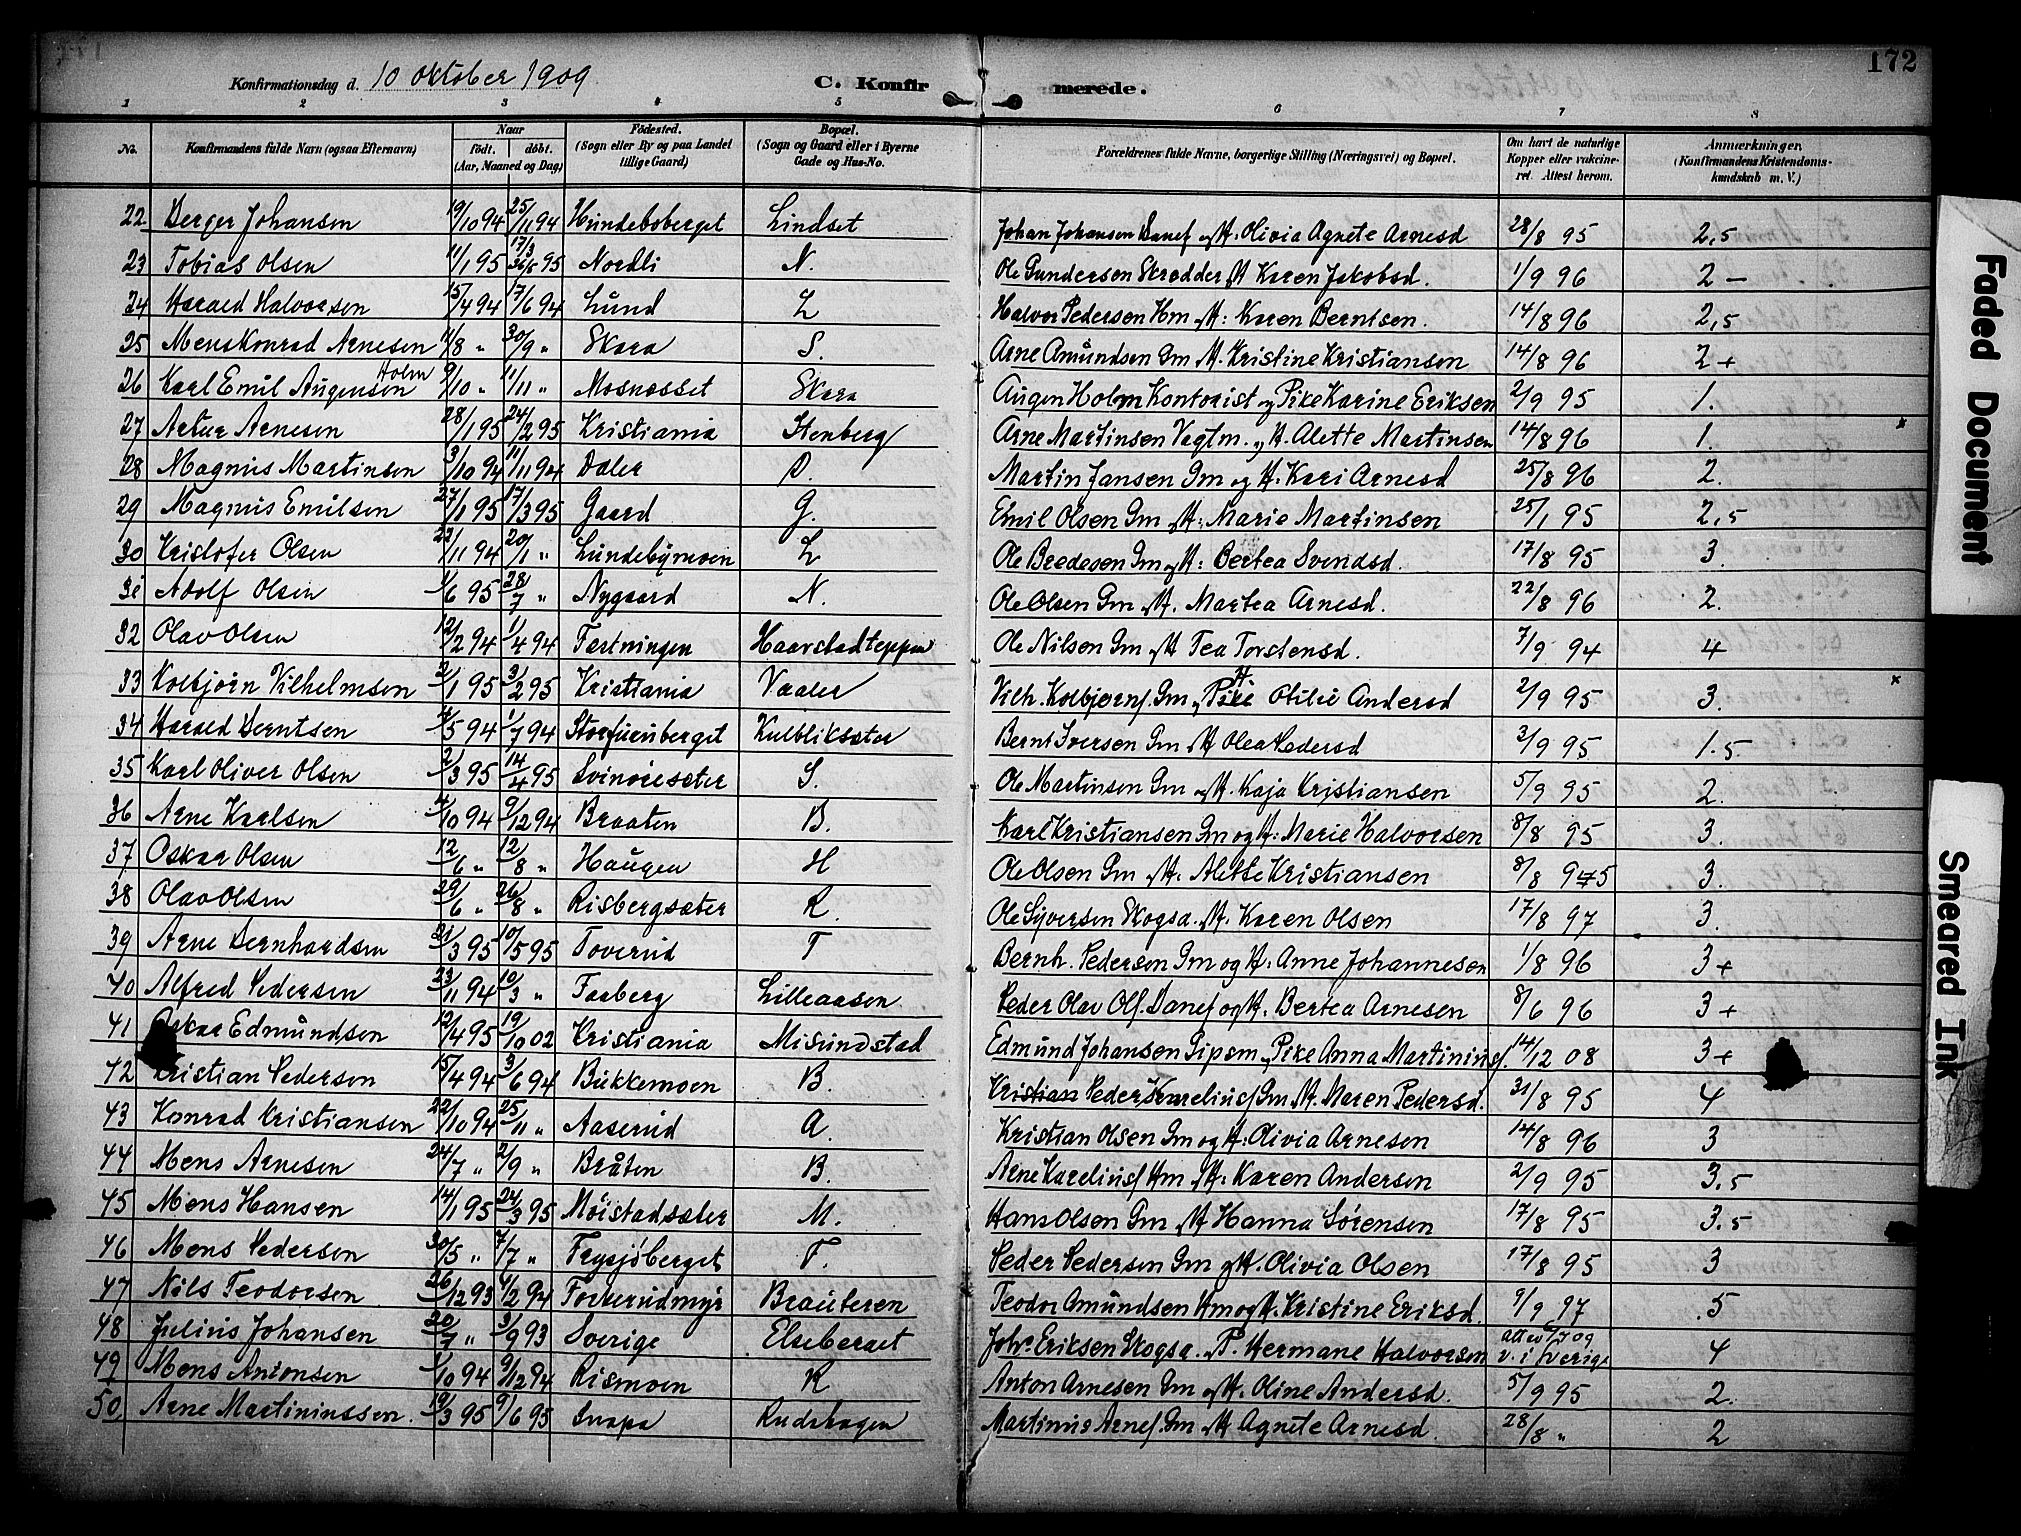 172
Konfirmationsdag d. 10 oktober 1909 C. Konfirmerede.
1 2 3 4 5 6 7 8
No. Konfirmandens fulde Navn (ogsaa Efternavn) Naar Født. døbt. (Aar, Maaned og Dag) Fødested. (Sogn eller By og paa Landet tillige Gaard) Bopæl. (Sogn og Gaard eller i Byerne Gade og Hus-No. Forældrenes fulde Navne, borgerlige Stilling (Næringsvei) og Bopæl. Om havt de naturlige Kopper eller vakcineret. Attest herom. Anmærkninger. (Konfirmandens Kristendomskundskab m. V.)
22 Berger Johansen 19/10 94 25/11 94 Hundeboberget Lindset Johan Johansen Danef og H. Olivia Agnete Arnesd 28/8 95 2,5
23 Tobias Olsen 11/1 95 17/3 95 Nordli N. Ole Gundersen Skrædder H Karen Jakobsd. 1/9 96 2 –
24 Harald Halvorsen 15/4 94 17/6 94 Lund L Halvor Pedersen Hm og H: Karen Berntsen. 14/8 96 2,5
25 Mens Konrad Arnesen 11/8 " 30/9 " Skara S. Arne Amundsen Gm H. Kristine Kristiansen 14/8 96 2+
26 Karl Emil Augensen Holm 9/10 " 11/11 " Mosnæsset Skara Augen Holm Kontorist og Pike Karine Eriksen 2/9 95 1.
27 Artur Arnesen 28/1 95 24/2 95 Kristiania Stenberg Arne Martinsen Vagtm. og H. Alette Martinsen 14/8 96 1.
28 Magnus Martinsen 3/10 94 11/11 94 Daler D. Martin Jansen Gm og H. Kari Arnesd 25/8 96 2.
29 Magnus Emilsen 27/1 95 17/3 95 Gaard G. Emil Olsen Gm og H: Marie Martinsen 25/1 95 2,5
30 Kristofer Olsen 23/11 94 20/1 " Lundebymoen L Ole Bredesen Gm og H: Bertea Svendsd. 17/8 95 3.
31 Adolf Olsen 1/6 95 28/7 " Nygaard N. Ole Olsen Gm og H. Martea Arnesd. 22/8 96 2.
32 Olav Olsen 12/2 94 1/4 94 Fæstningen Haarstadteppen Ole Nilsen Gm og H Tea Torstensd. 7/9 94 4
33 Kolbjørn Vilhelmsen 2/1 95 3/2 95 Kristiania Vaaler Vilh. Kolbjørns. Gm og Pike H. Otilie Andersd 2/9 95 3.
34 Harald Berntsen 4/5 94 1/7 94 Storfuruberget Kulbliksæter Bernt Iversen Gm og H Olea Pedersd 3/9 95 1.5
35 Karl Oliver Olsen 2/3 95 14/4 95 Svinøresæter S. Ole Martinsen Gm og H. Kaja Kristiansen 5/9 95 2.
36 Arne Karlsen 4/10 94 9/12 94 Braaten B. Karl Kristiansen Gm og H: Marie Halvorsen 8/8 95 3.
37 Oskar Olsen 12/6 " 12/8 " Haugen H Ole Olsen Gm og H. Alette Kristiansen 8/8 975 3.
38 Olav Olsen 29/6 " 26/8 " Risbergsæter R. Ole Syversen Skogsa. H. Karen Olsen 17/8 97 3.
39 Arne Bernhardsen 21/3 95 10/5 95 Toverud T Bernh. Pedersen Gm og H: Anne Johannesen 1/8 96 3+
40 Alfred Pedersen 23/11 94 10/3 " Faaberg Lilleaasen Peder Olav Ols. Danef og H. Bertea Arnesen 8/6 96 3+
41 Oskar Edmundsen 12/4 95 19/10 02 Kristiania Misundstad Edmund Johansen Gipsm og Pike Anna Martinius. 14/12 08 3+
42 Kristian Pedersen 15/4 94 3/6 94 Bukkemoen B. Kristian Peder Karelius Gm. H. Maren Pedersd. 31/8 95 4
43 Konrad Kristiansen 22/10 94 25/11 " Aaserud A. Kristian Olsen Gm og H: Olivia Arnesen 14/8 96 3
44 Mens Arnesen 24/7 " 2/9 " Bråten B. Arne Karelius Hm og H: Karen Andersen 2/9 95 3.5
45 Mens Hansen 14/1 95 24/3 95 Møistadsæter M. Hans Olsen Gm og H Hanna Sørensen 17/8 95 3.5
46 Mens Pedersen 30/5 " 7/7 " Frysjøberget F. Peder Pedersen Gm og H. Olivia Olsen 17/8 95 3
47 Nils Teodorsen 26/12 93 4/2 94 Torkerudmyr Brauteren Teodor Amundsen Hm og H. Kristine Eriksd. 9/9 97 .5
48 Julius Johansen 20/7 " 3/9 93 Sverige Elseberget Johs. Eriksen Skogsa. P. Hermane Halvorsen v. i Sverige 4
49 Mens Antonsen 1/10 94 9/12 94 Rismoen R Anton Arnesen Gm og H. Oline Andersd. 5/9 95 2.
50 Arne Martiniussen. 19/3 95 9/6 95 Snapa Rudshagen Martinius Arnes. Gm og H Agnete Arnesd. 28/8 " 2
Faded Document
Smeared Ink